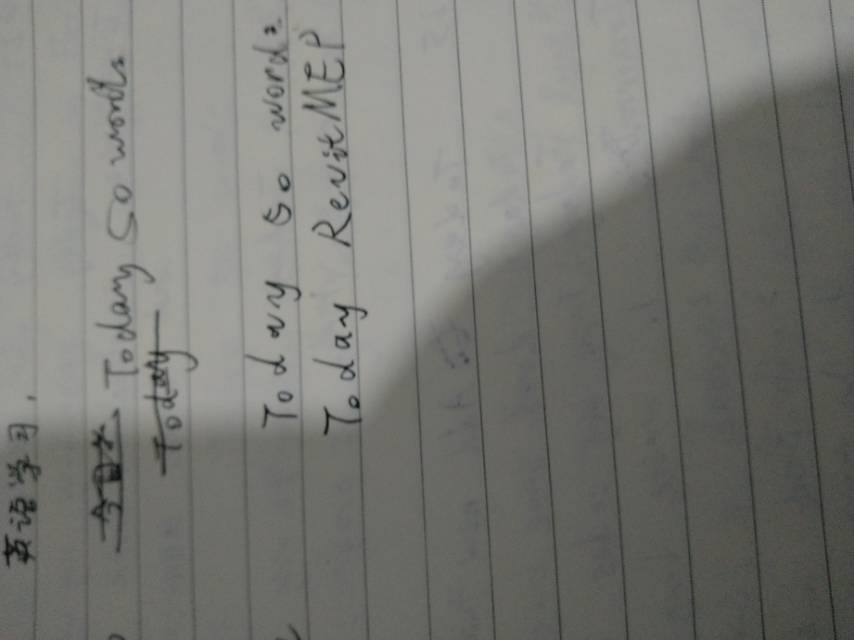 英语学习.
Today 50 words
Today
Today 50 words
Today Revit MEP